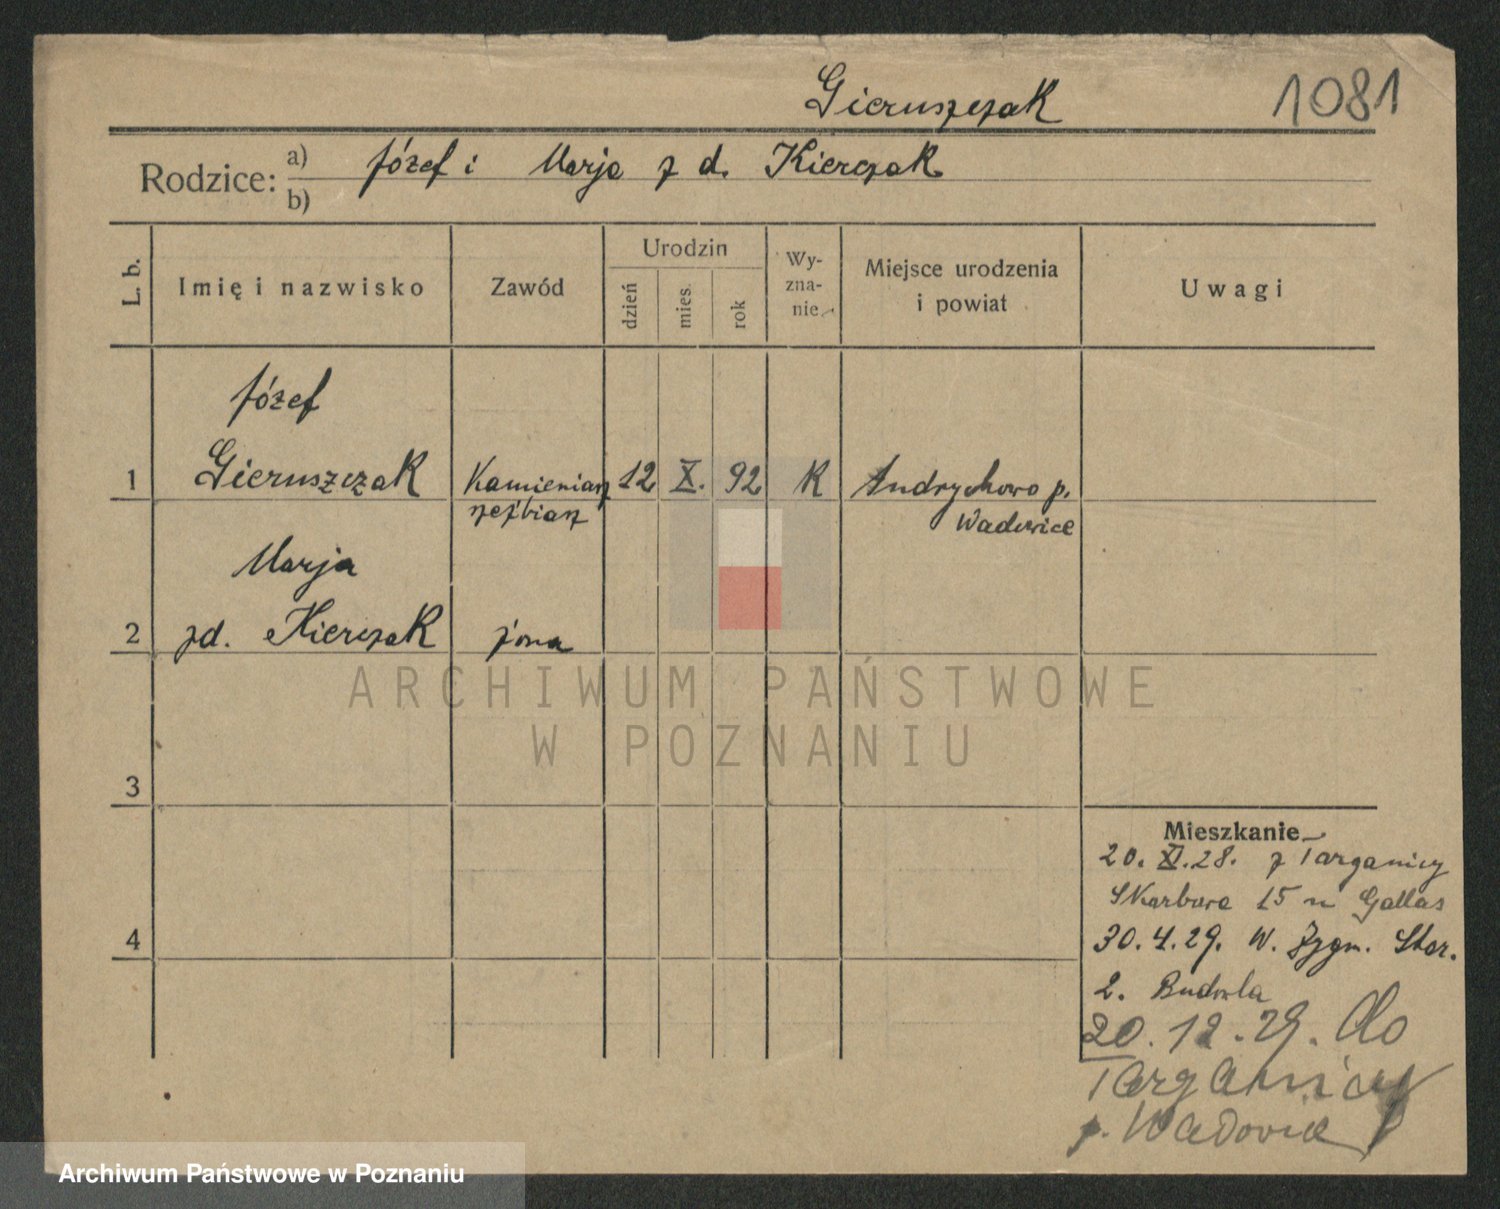 Gieruszczak 1081
Rodzice: a) Józef i Marja z d. Kierczak
b)
L. b. Imię i nazwisko Zawód Urodzin dzień mies. rok Wy-zna-nie Miejsce urodzenia i powiat Uwagi
Józef
1 Gieruszczak Kamieniarz 12 X. 92 K Andrychowo p.
rzeźbiarz Wadowice
Marja
2 zd. Kierczak żona
ARCHIWUM PAŃSTWOWE
W POZNANIU
3
Mieszkanie
20. XI. 28. z Targanicy
Skarbowa 15 u Gallas
4
30. 4. 29. W. Zygm. Star.
2. Budowla
20. 12. 29. do
Targanicy
p. Wadowice
Archiwum Państwowe w Poznaniu